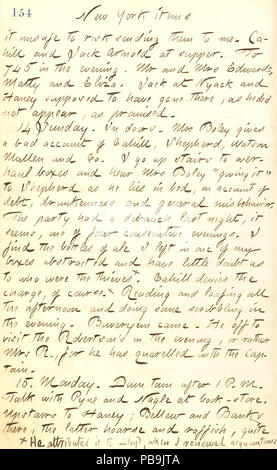 154
New York items
it unsafe to risk sending them to me. Ca-
hill and Jack Arnold at supper. To
745 in the evening. Mr and Mrs Edwards,
Matty and Eliza. Jack at Nyack and
Haney supposed to have gone there, as he does
not appear, as promised.
14. Sunday. In doors. Mrs Boley gives
a bad account of Cahill, Shepherd, Watson
Mullen and Co. I go up stairs to over-
haul boxes and hear Mrs Boley "giving it"
to Shepherd as he lies in bed, on account of
debt, drunkenness and general misbehavior.
The party had a debauch last night, it
seems, one of four consecutive evenings. I
find the bottles of ale I left in one of my
boxes abstracted and have little doubt as
to who were the thieves. + Cahill denies the
charge, of course. Reading and loafing all
the afternoon and doing some scribbling in
the evening. Bweryem came. He off to
visit the Robertsons in the evening, or rather
Mrs R., for he has quarrelled with the Cap-
tain.
15. Monday. Down town after 1 P.M.
Talk with Pyne and Nagle at book-store.
Upstairs to Haney; Bellew and Banks
there, the latter hoarse and raffish, quite
+ He attributed it to Lloyd, when I renewed acquaintance
alamy
Image ID: PB9JTA
www.alamy.com